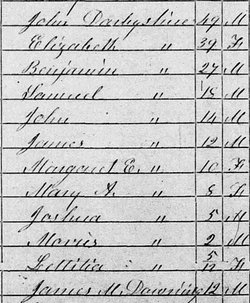 John Darbyshire 49 M
Elizabeth " 39 F
Benjamin " 27 M
Samuel " 15 M
John " 14 M
James " 12 M
Margaret E. " 10 F
Mary A. " 8 F
Joshua " 5 M
" 2 M
Lettitia " 5/12 F
James M. 12 M